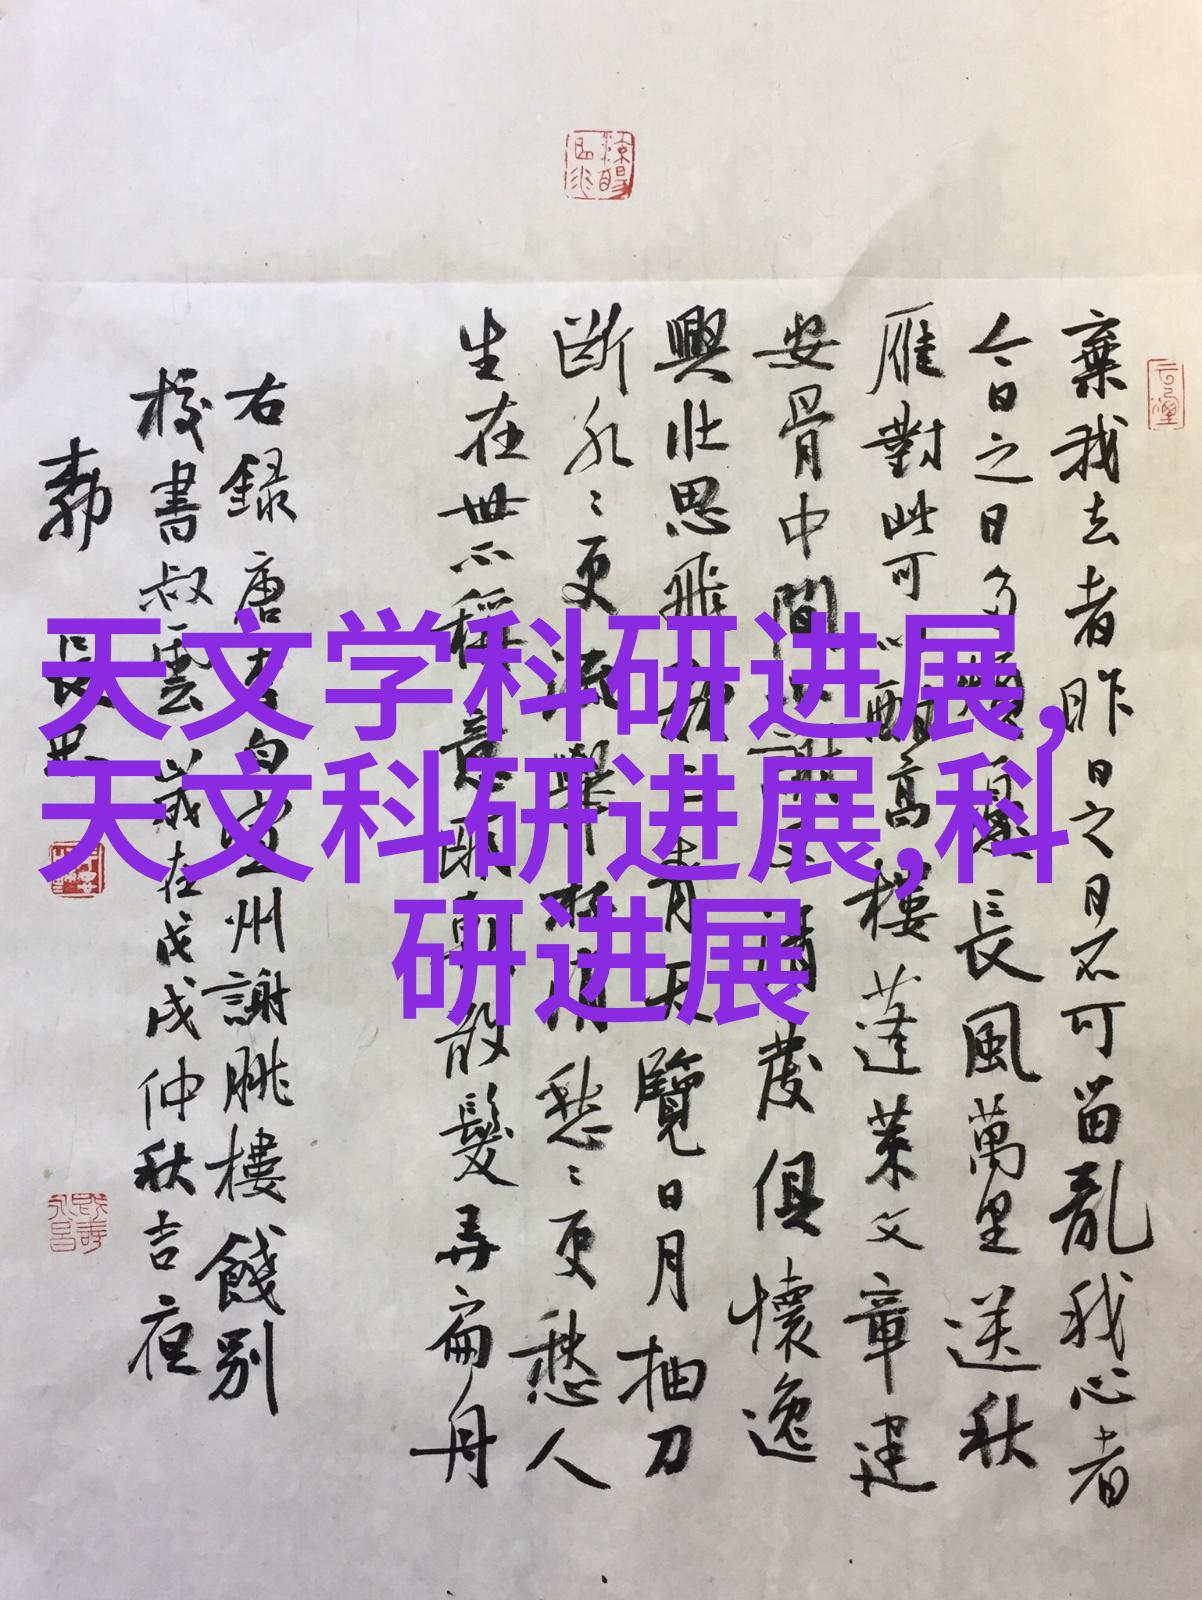 天文学科研进展,
天文科研进展,科
研进展
棄我去者昨日之日不可留亂我心者
今日之日多煩憂長風萬里送秋
雁對此可以酣高樓蓬萊文章建
安骨中間小謝又清發俱懷逸
興壯思飛欲上青天覽日月抽刀
斷水〻更流舉杯消愁〻更愁人
生在世不稱意明朝散髮弄扁舟
右錄唐李白宣州謝朓樓餞別
校書叔雲歲在戊戌仲秋吉夜
長